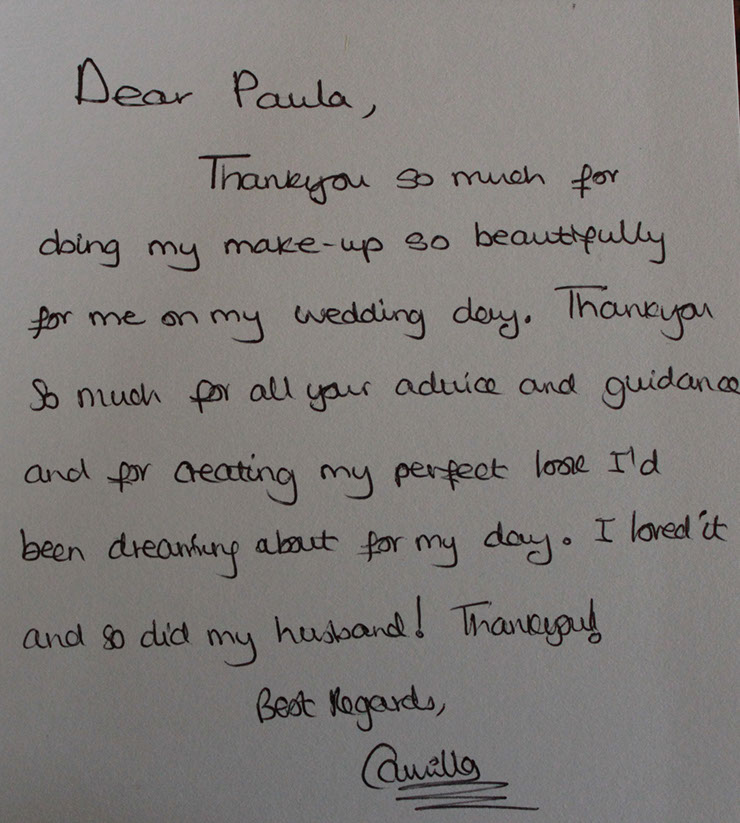 Dear Paula,
Thankyou so much for
doing my make-up so beautifully
for me on my wedding day. Thankyou
so much for all your advice and guidance
and for creating my perfect look I'd
been dreaming about for my day. I loved it
and so did my husband! Thankyou!
Best Regards,
Camilla